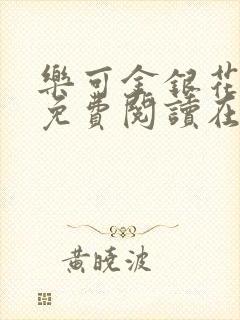 樂可金銀花
免費閱讀在
黃曉波